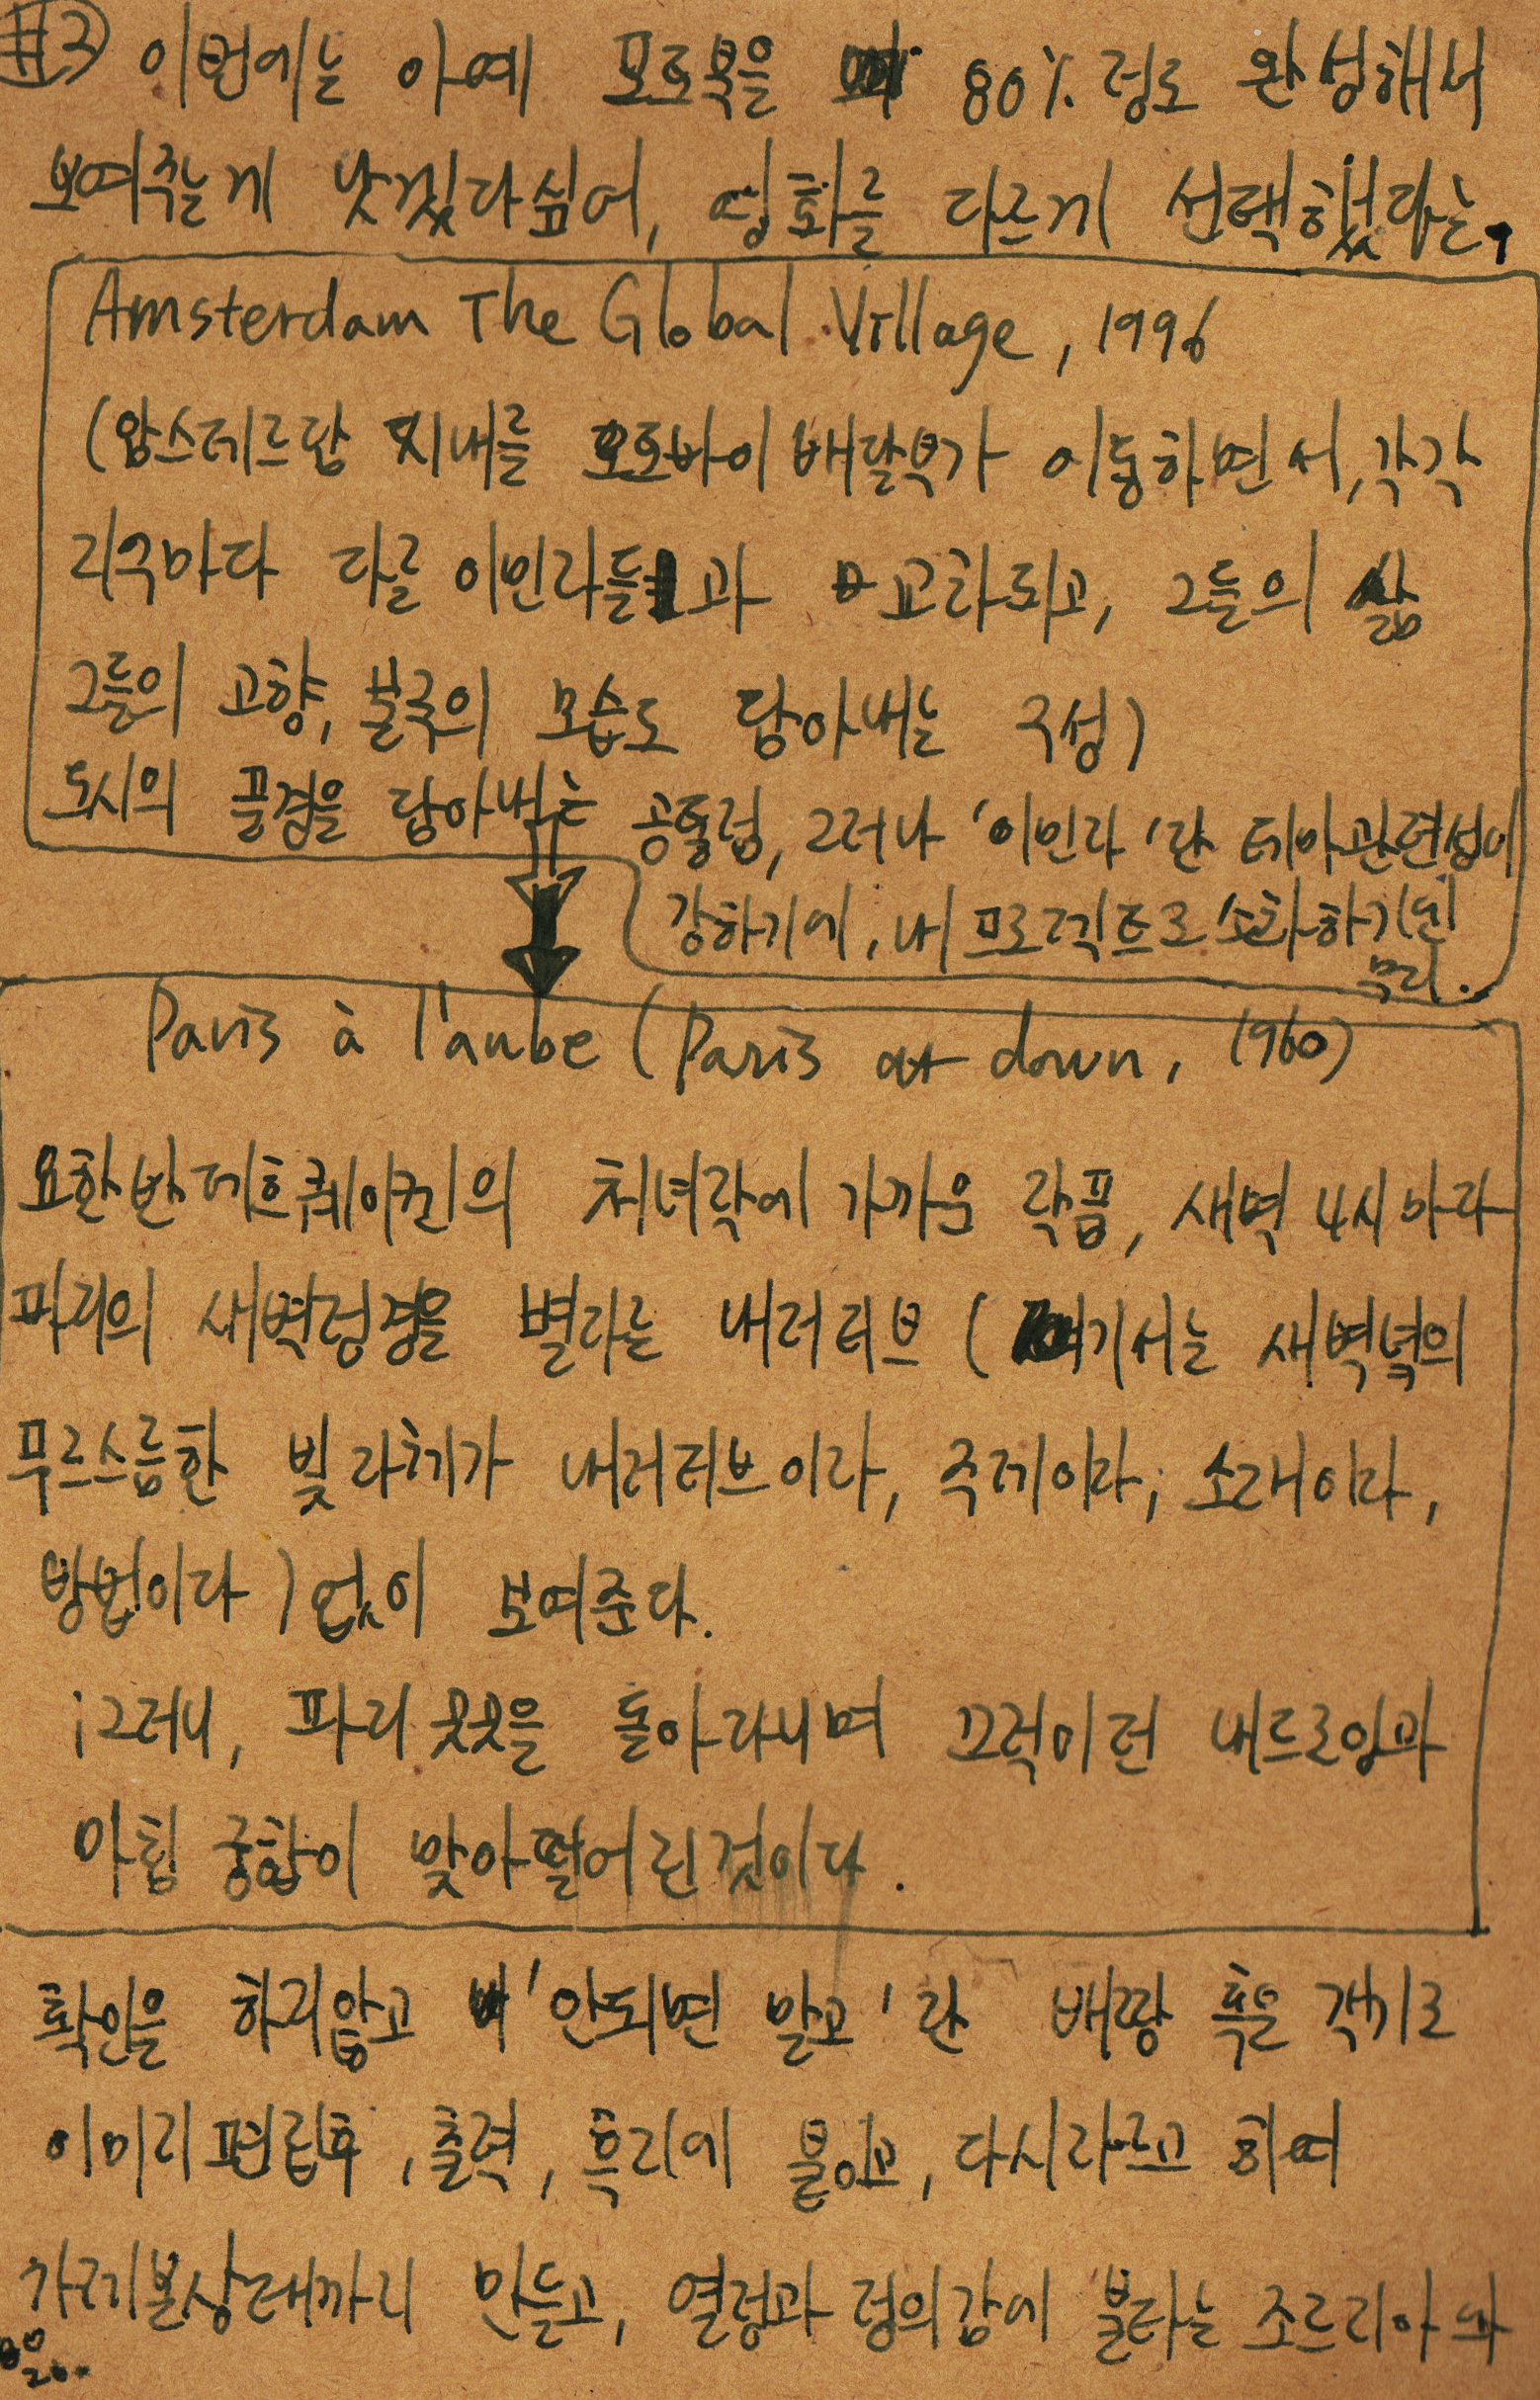 #3 이번에는 아예 포토북을 80% 정도 완성해서
보여주는게 낫겠다싶어, 영화를 다르게 선택했다는.
Amsterdam The Global Village, 1996
(암스테르담 시내를 오토바이 배달부가 이동하면서, 각각
지구마다 다른 이민자들과 교차되고, 그들의 삶
그들의 고향, 본국의 모습도 담아내는 구성)
도시의 풍경을 담아내는 공통점, 그러나 '이민자'란 테마관련성이
강하기에, 내 프로젝트로 소화하기엔
무리.
Paris à l'aube (Paris at down, 1960)
요한 반 데르 쾨이켄의 처녀작에 가까운 작품, 새벽 4시마다
파리의 새벽정경을 별다른 내러티브 (여기서는 새벽녘의
푸르스름한 빛 자체가 내러티브이자, 주제이자, 소재이자,
방법이다) 없이 보여준다.
; 그러니, 파리 곳곳을 돌아다니며 끄적이던 내 드로잉과
마침 궁합이 맞아떨어진것이다.
확인을 하지않고 '안되면 말고'란 배짱 혹은 객기로
이미지 편집후, 출력, 흑지에 붙이고, 다시 자르고 하여
가제본 상태까지 만들고, 열정과 정의감에 불타는 조르리아와